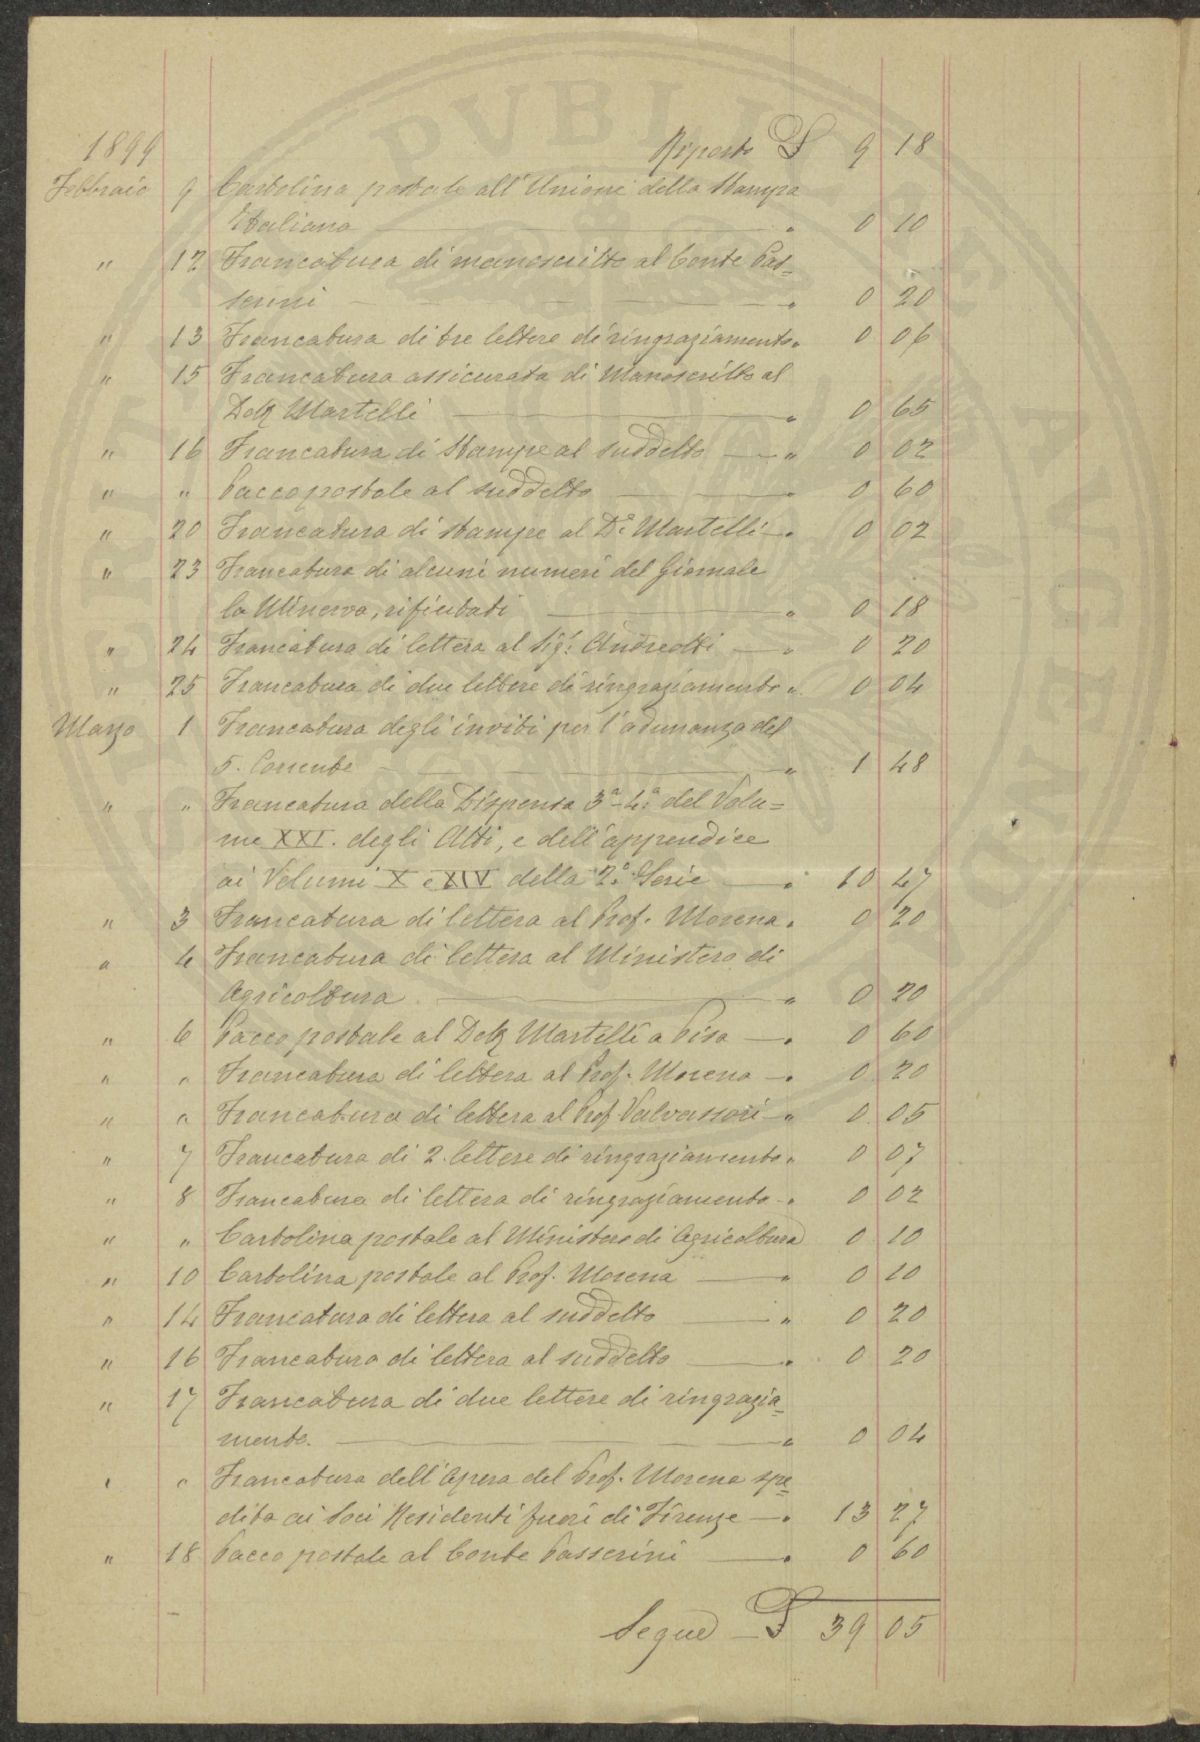 1899 Riporto £ 9 18
Febbraio 9 Cartolina postale all'Unione della Stampa
Italiana " 0 10
" 12 Francatura di manoscritto al Conte Pas=
serini " 0 20
" 13 Francatura di tre lettere di ringraziamento " 0 06
" 15 Francatura assicurata di Manoscritto al
Dott Martelli " 0 65
" 16 Francatura di Stampe al suddetto " 0 02
" " Pacco postale al suddetto " 0 60
" 20 Francatura di stampe al Dr. Martelli " 0 02
" 23 Francatura di alcuni numeri del Giornale
la Minerva, rifiutati " 0 18
" 24 Francatura di lettera al Sigr. Andreotti " 0 20
" 25 Francatura di due lettere di ringraziamento " 0 04
Marzo 1 Francatura degli inviti per l'adunanza del
5. Corrente " 1 48
" " Francatura della Dispensa 3a-4a del Volu=
me XXI. degli Atti, e dell'appendice
ai Volumi X e XIV della 2a Serie " 10 47
" 3 Francatura di lettera al Prof. Morena " 0 20
" 4 Francatura di lettera al Ministero di
Agricoltura " 0 20
" 6 Pacco postale al Dott Martelli a Pisa " 0 60
" " Francatura di lettera al Prof. Morena " 0 20
" " Francatura di lettera al Prof Valvassori " 0 05
" 7 Francatura di 2. lettere di ringraziamento " 0 07
" 8 Francatura di lettera di ringraziamento " 0 02
" " Cartolina postale al Ministero di Agricoltura 0 10
" 10 Cartolina postale al Prof. Morena " 0 10
" 14 Francatura di lettera al suddetto " 0 20
" 16 Francatura di lettera al suddetto " 0 20
" 17 Francatura di due lettere di ringrazia=
mento. " 0 04
" " Francatura dell'Opera del Prof. Morena spe=
dita ai Soci Residenti fuori di Firenze " 13 27
" 18 Pacco postale al Conte Passerini " 0 60
Segue £ 39 05